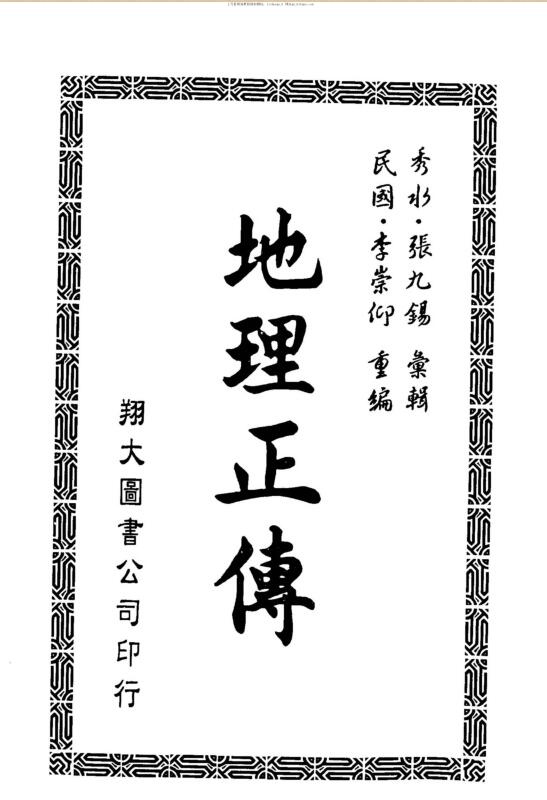 秀水·張九錫 彙輯
民國·李崇仰 重編
地理正傳
翔大圖書公司印行